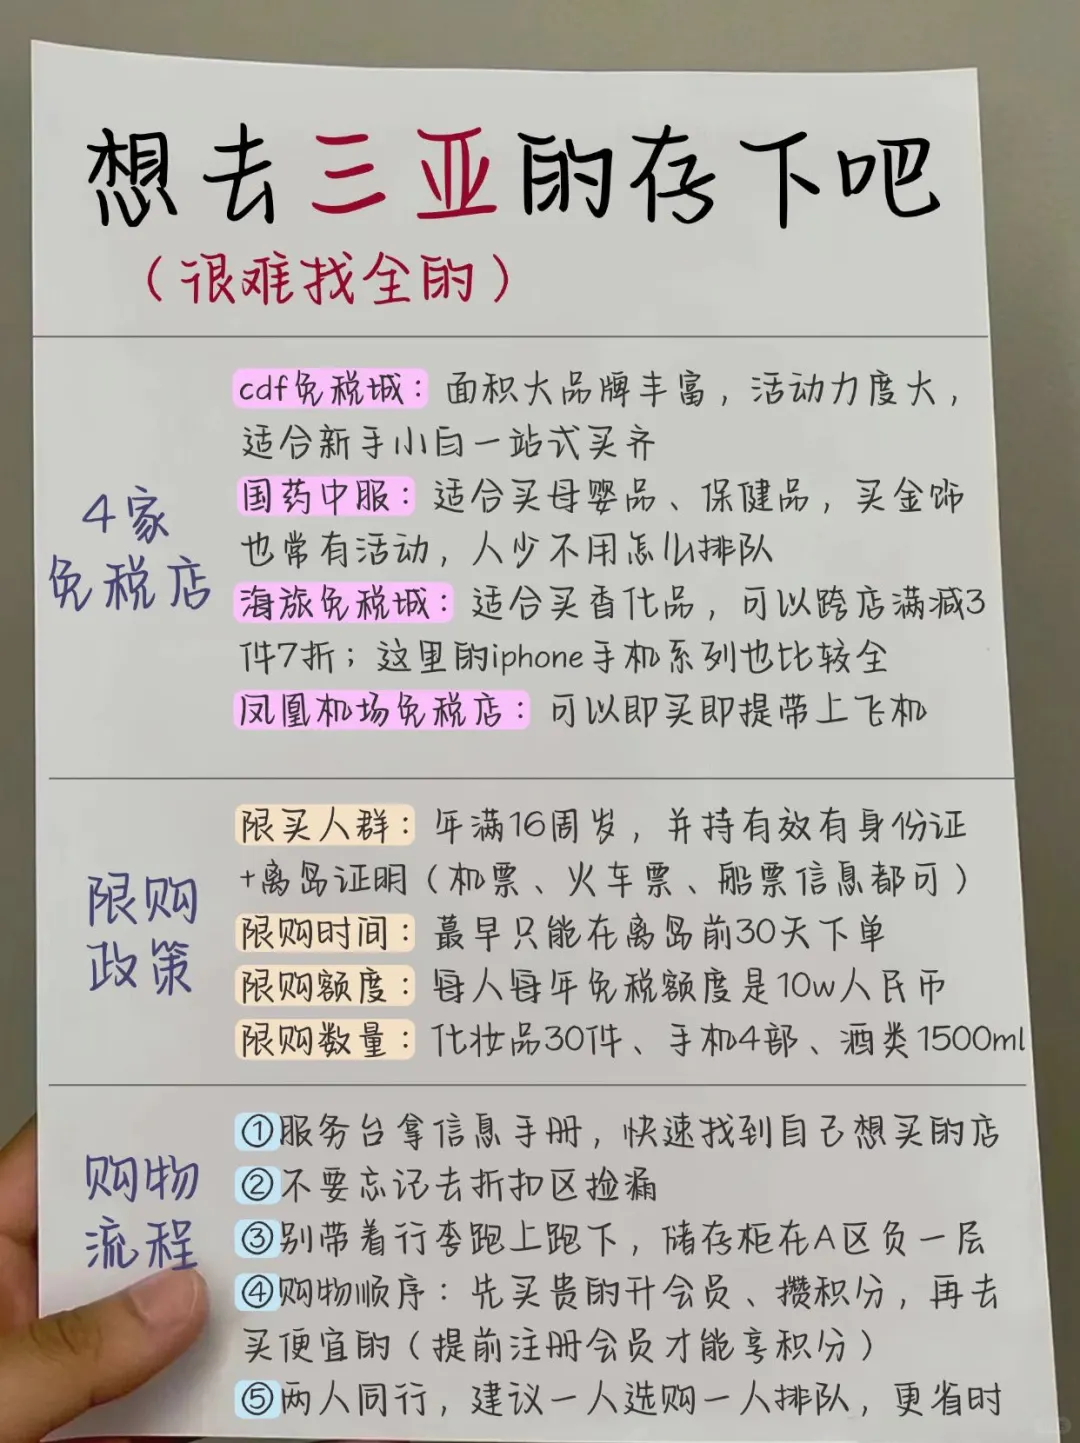 想去三亚的存下吧
（很难找全的）
4家
免税店
cdf免税城：面积大品牌丰富，活动力度大，
适合新手小白一站式买齐
国药中服：适合买母婴品、保健品，买金饰
也常有活动，人少不用怎么排队
海旅免税城：适合买香化品，可以跨店满减3
件7折；这里的iphone手机系列也比较全
凤凰机场免税店：可以即买即提带上飞机
限购
政策
限买人群：年满16周岁，并持有效有身份证
+离岛证明（机票、火车票、船票信息都可）
限购时间：最早只能在离岛前30天下单
限购额度：每人每年免税额度是10w人民币
限购数量：化妆品30件、手机4部、酒类1500ml
购物
流程
①服务台拿信息手册，快速找到自己想买的店
②不要忘记去折扣区捡漏
③别带着行李跑上跑下，储存柜在A区负一层
④购物顺序：先买贵的开会员、攒积分，再去
买便宜的（提前注册会员才能享积分）
⑤两人同行，建议一人选购一人排队，更省时